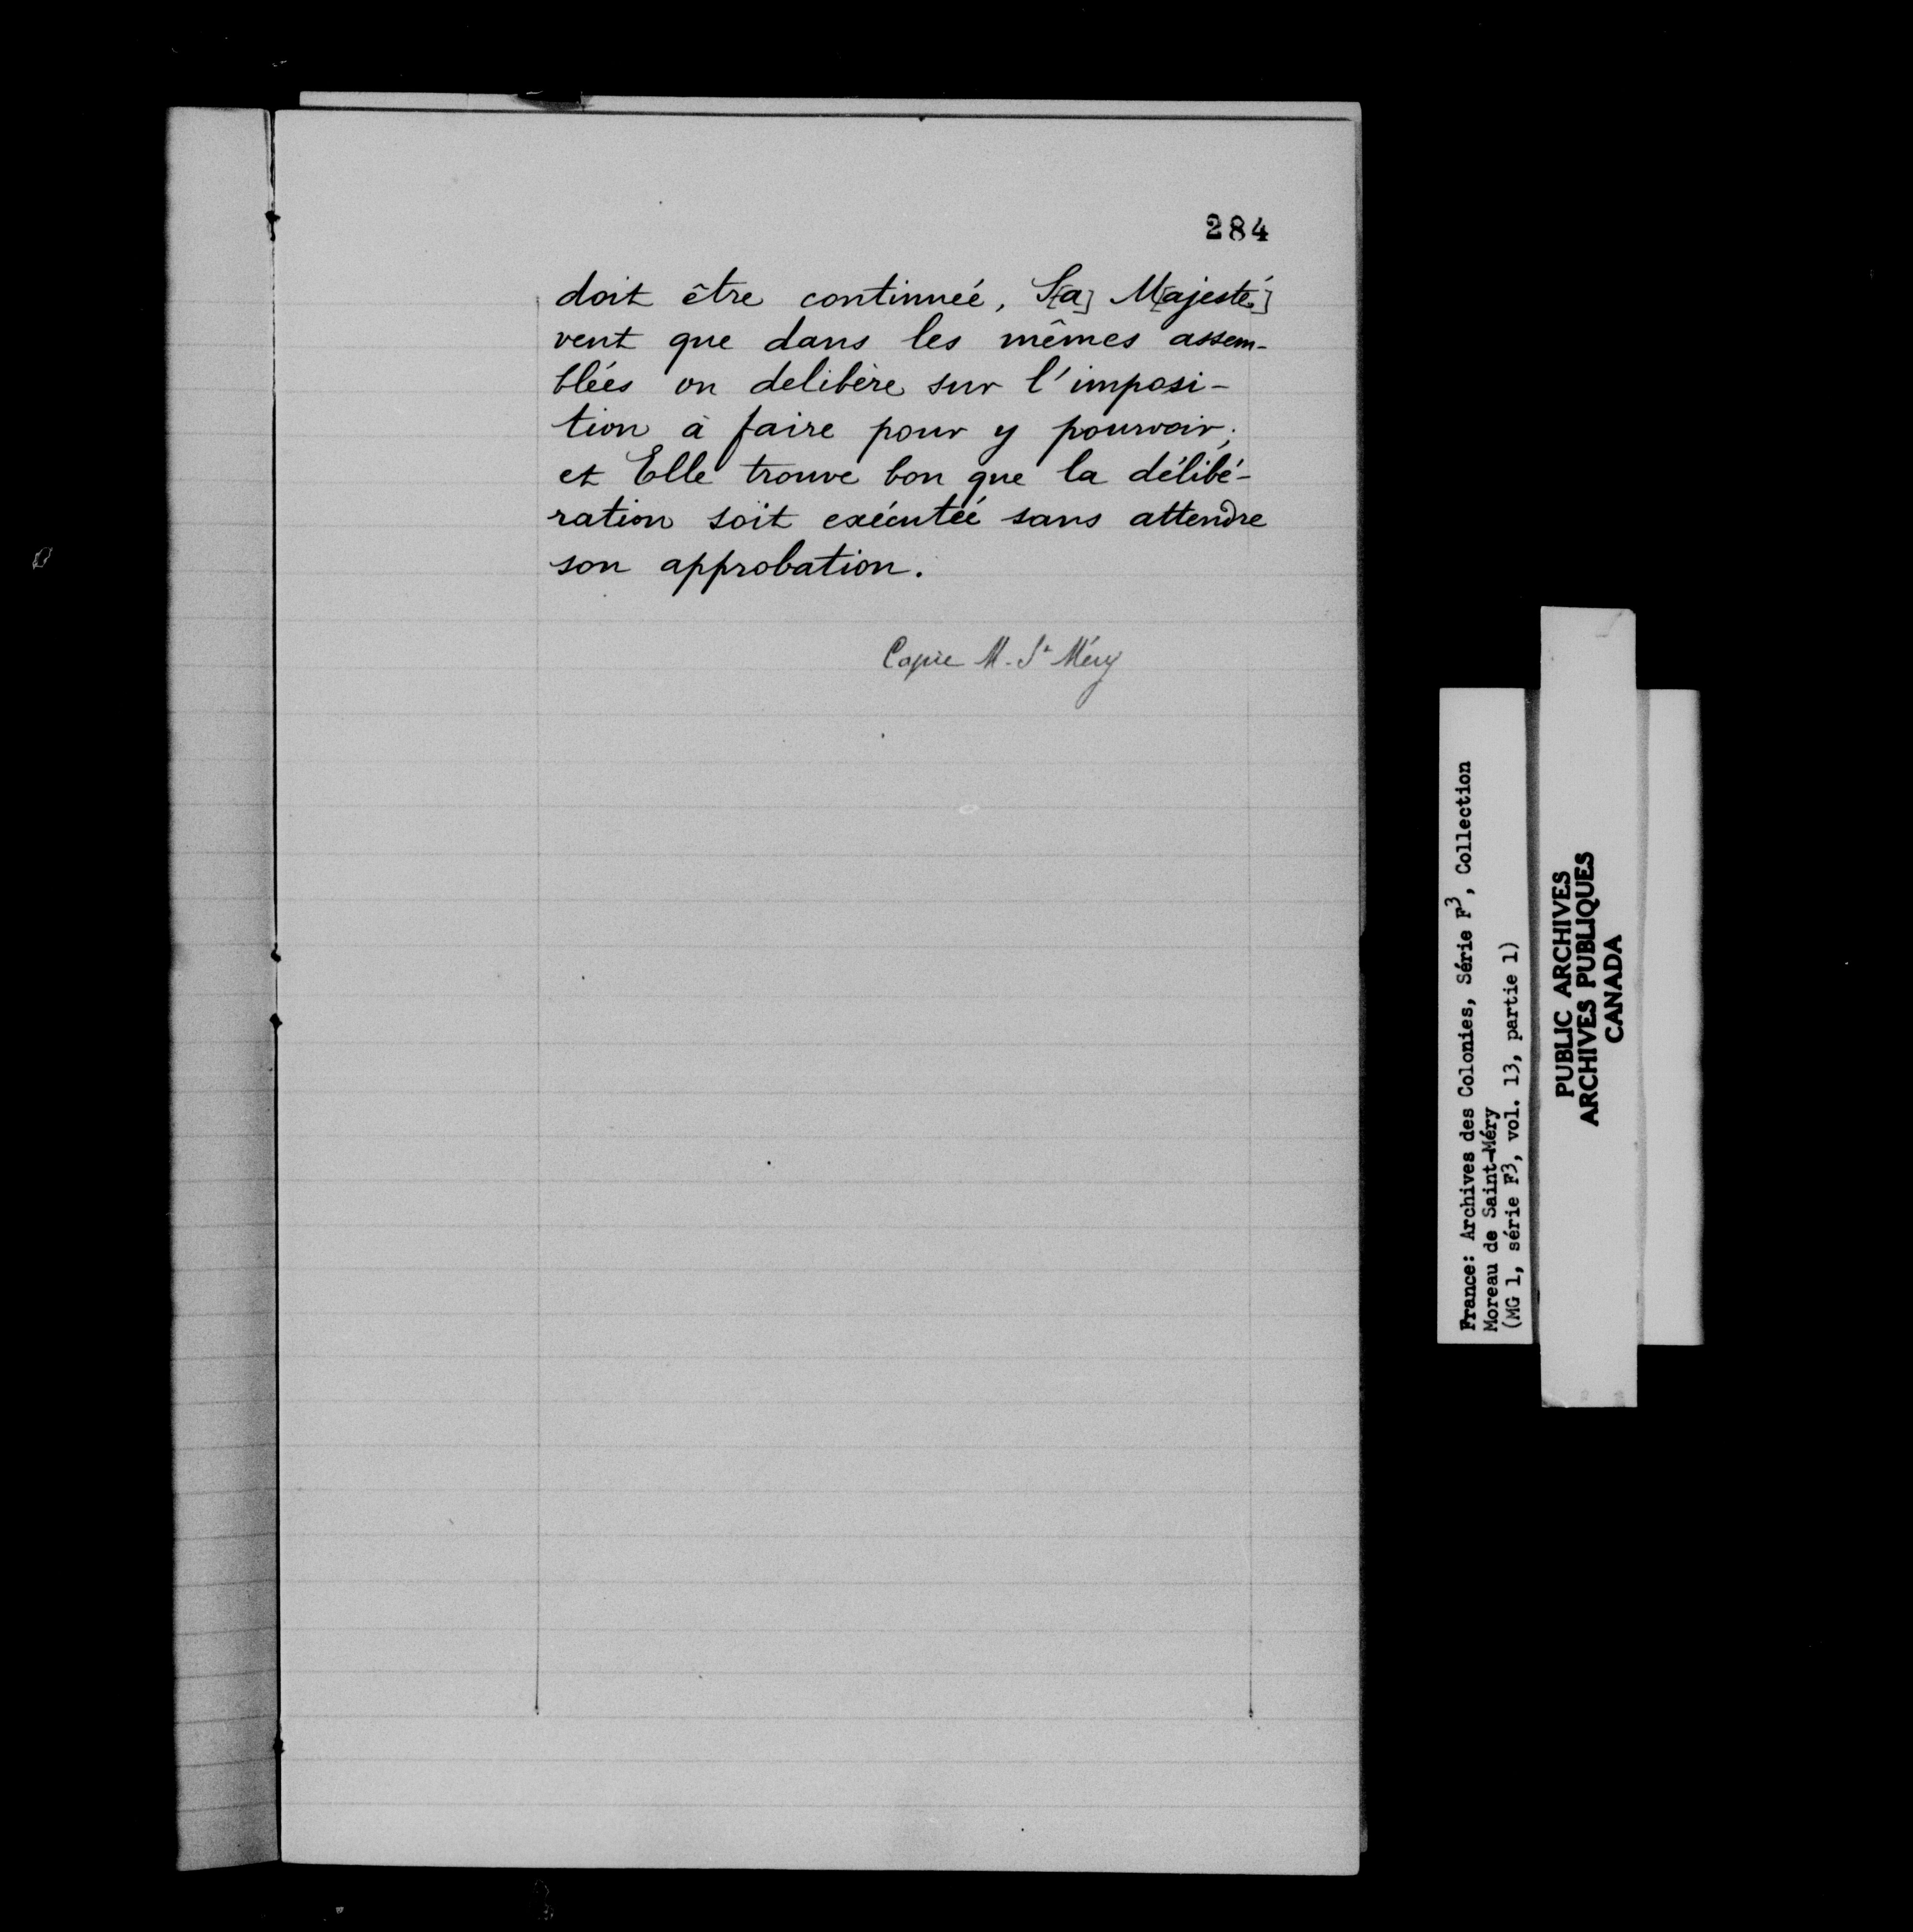 284
doit être continuée, S[a] M[ajesté]
veut que dans les mêmes assem-
blées on delibère sur l'imposi-
tion à faire pour y pourvoir;
et Elle trouve bon que la délibé-
ration soit exécutée sans attendre
son approbation.
Copie M. St Méry
France: Archives des Colonies, Série F3, Collection
Moreau de Saint-Méry
(MG 1, série F3, vol. 13, partie 1)
PUBLIC ARCHIVES
ARCHIVES PUBLIQUES
CANADA